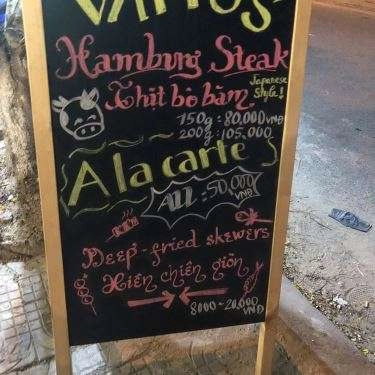 Hamburg Steak
Japanese
Style!
Thịt bò bằm
150g = 80,000VNĐ
200g = 105,000
A la carte
ALL = 50,000
VNĐ
Deep-fried skewers
Xiên chiên giòn
8000 - 20,000
VNĐ